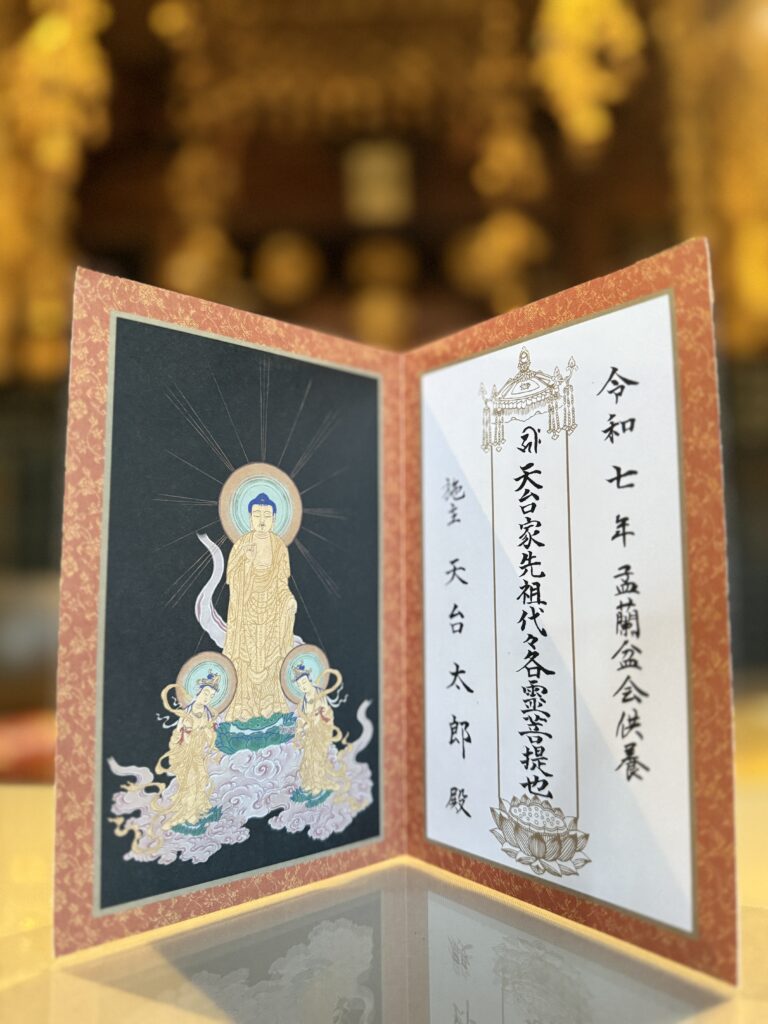 令和七年盂蘭盆会供養
𑖮𑖿𑖨𑖱𑖾 天台家先祖代々各霊菩提也
施主 天台太郎 殿